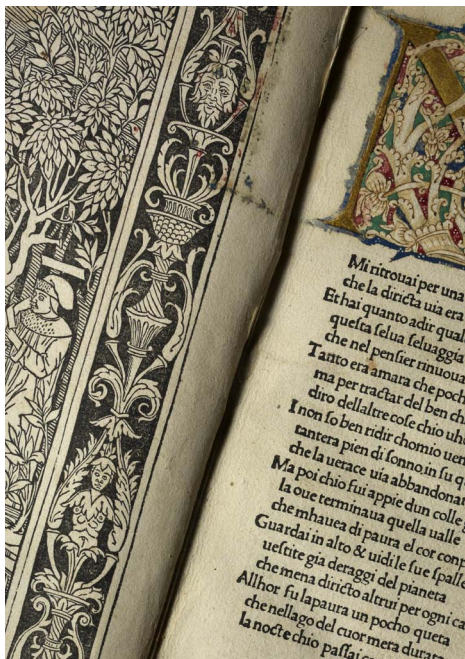 Mi ritrouai per una
che la diricta uia era
Et hai quanto adir qual
queſta ſelua ſeluaggia
che nel penſier rinuoua
Tanto era amara che poch
ma per tractar del ben ch
diro dellaltre coſe chio uh
I non ſo ben ridir chomio uen
tantera pien di ſonno in ſu q
che la uerace uia abbandona
Ma poi chio fui appie dun colle
la oue terminaua quella ualle
che mhauea di paura el cor conp
Guardai in alto & uidi le ſue ſpalle
ueſtite gia deraggi del pianeta
che mena diricto altrui per ogni ca
Allhor fu lapaura un pocho queta
che nellago del cuor mera durata
la nocte chio paſſai